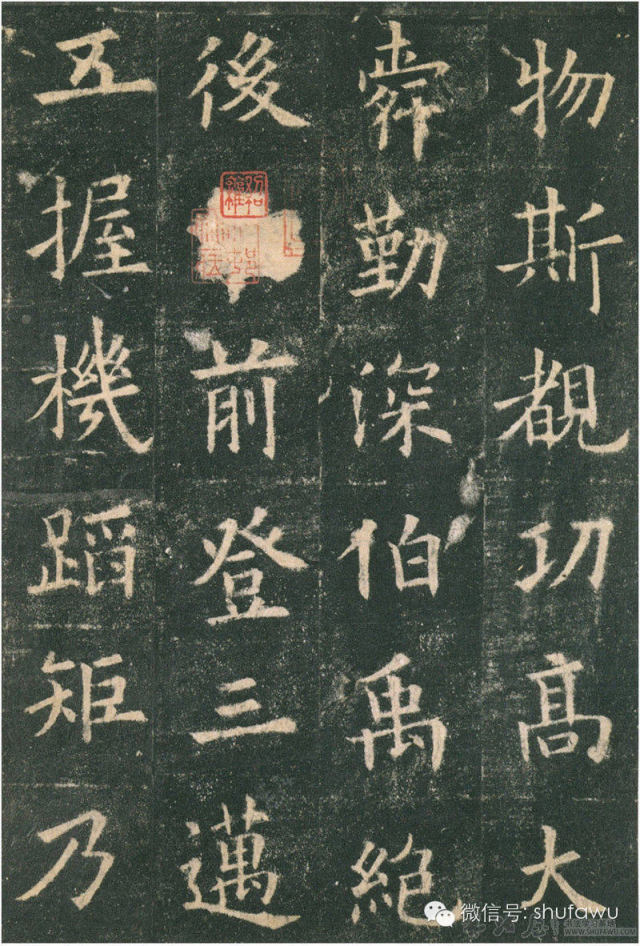 物斯覩功高大
舜勤深伯禹絶
後前登三邁
五握機蹈矩乃
微信号: shufawu
WWW.SHUFAWU.COM